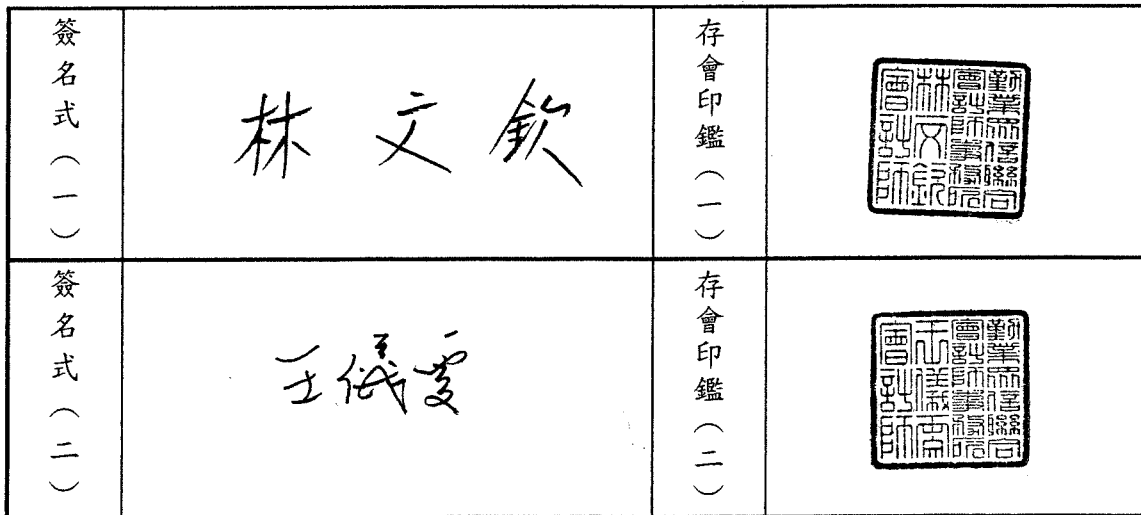 簽名式(一)
林文欽
存會印鑑(一)
勤業眾信聯合
會計師事務所
林文欽
會計師
簽名式(二)
王儀雯
存會印鑑(二)
勤業眾信聯合
會計師事務所
王儀雯
會計師